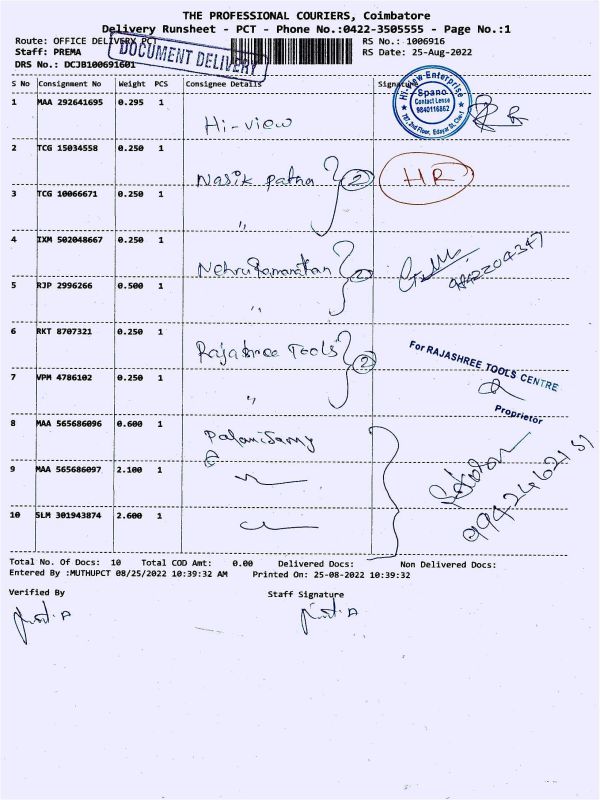 THE PROFESSIONAL COURIERS, Coimbatore
Delivery Runsheet - PCT - Phone No.:0422-3505555 - Page No.:1
Route: OFFICE DELIVERY PCT
RS No.: 1006916
Staff: PREMA
RS Date: 25-Aug-2022
DOCUMENT DELIVERY
DRS No.: DCJB100691601
S No Consignment No Weight PCS Consignee Details Signature
1 MAA 292641695 0.295 1 Hi-view
Hi-View Enterprise
Spano
Contact Lense
9840116862
2 TCG 15034558 0.250 1 Nasik patna 2 HR
3 TCG 10066671 0.250 1 "
4 IXM 502048667 0.250 1
5 RJP 2996266 0.500 1 "
6 RKT 8707321 0.250 1 Rajashree Tools 2
For RAJASHREE TOOLS CENTRE
Proprietor
7 VPM 4786102 0.250 1 "
8 MAA 565686096 0.600 1 Palanisamy
9 MAA 565686097 2.100 1
10 SLM 301943874 2.600 1
Total No. Of Docs: 10 Total COD Amt: 0.00 Delivered Docs: Non Delivered Docs:
Entered By :MUTHUPCT 08/25/2022 10:39:32 AM Printed On: 25-08-2022 10:39:32
Verified By Staff Signature